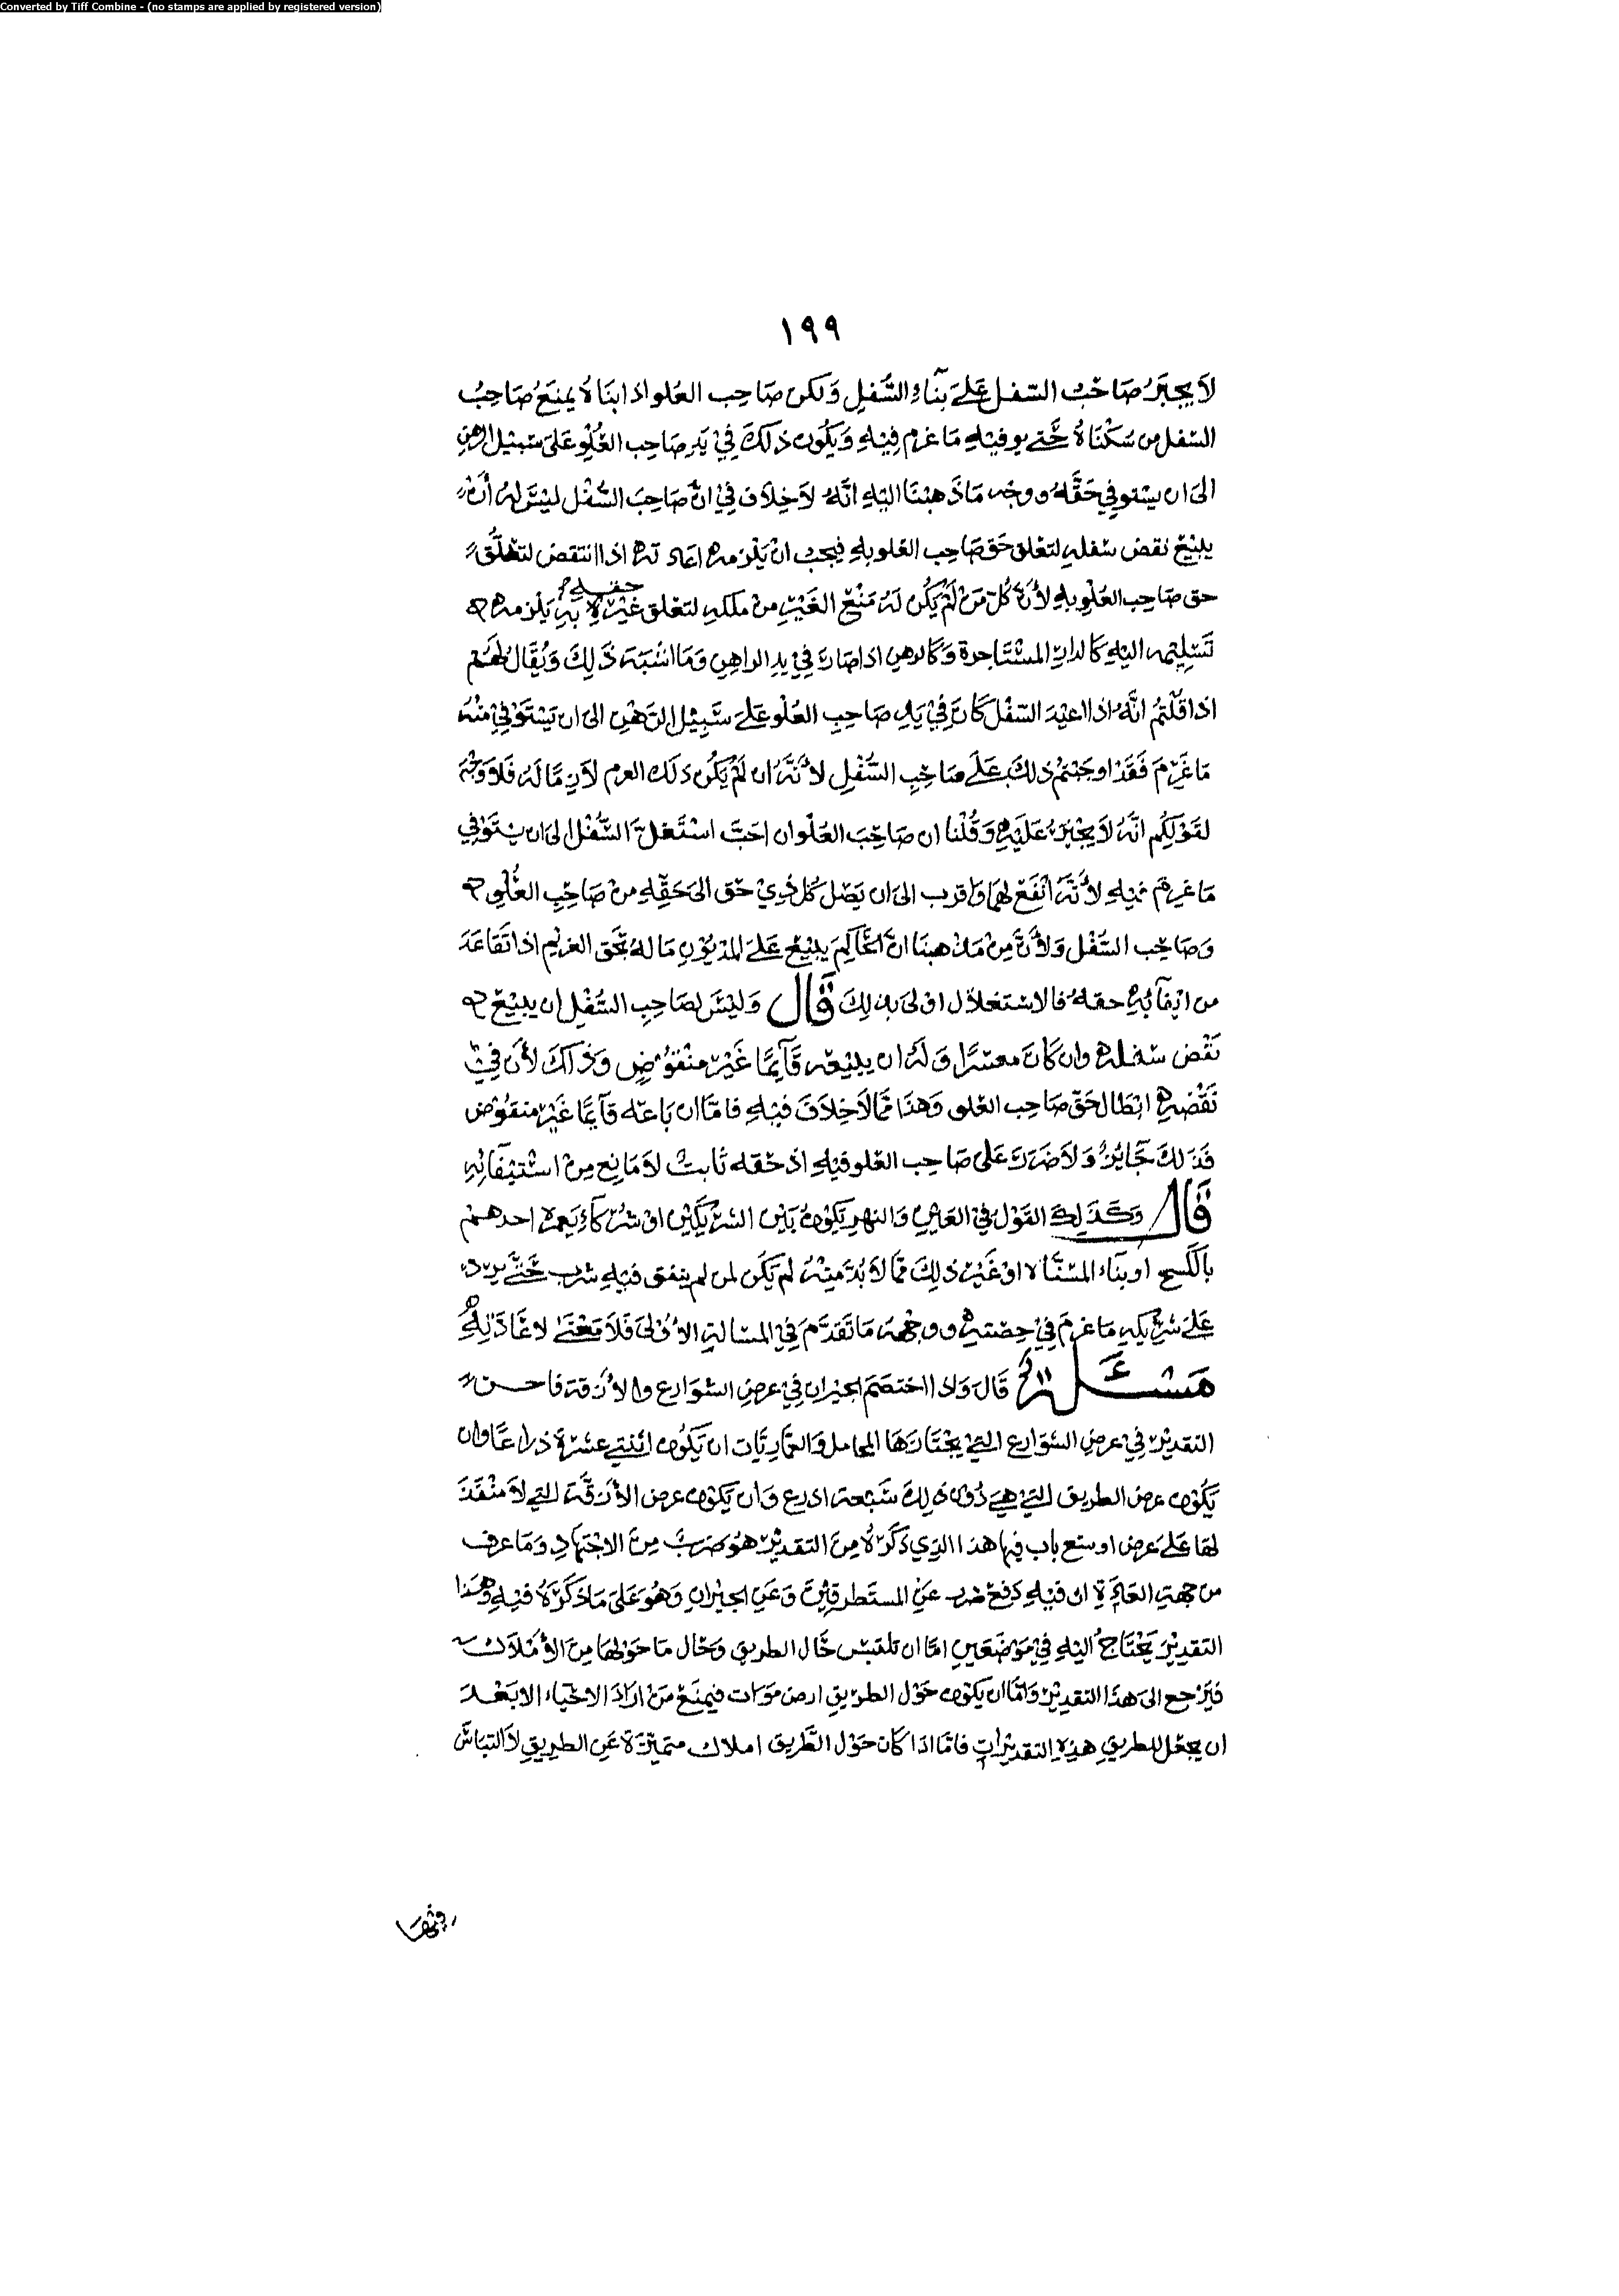 Converted by Tiff Combine - (no stamps are applied by registered version)
١٩٩
لا يجبر صاحب السفل على بناء السفل ولكن صاحب العلو اذا بناه يمنع صاحب
السفل من سكناه حتى يوفيه ما غرم فيه ويكون ذلك في يد صاحب العلو على سبيل الرهن
الى ان يستوفي حقه ووجه ما ذهبنا اليه انه لا خلاف في ان صاحب السفل ليس له أن
يبيع نقض سفله لتعلق حق صاحب العلو به فيجب ان يلزمه اعادته اذا انتقض لتعلق
حق صاحب العلو به لأن كل من لم يكن له منع الغير من ملكه لتعلق حقه به يلزمه
تسليمه اليه كالدار المستاجرة وكالرهن اذا صار في يد الراهن وما اشبه ذلك ويقال لهم
اذا قلتم انه اذا اعيد السفل كان في يد صاحب العلو على سبيل الرهن الى ان يستوفي منه
ما غرم فقد اوجبتم ذلك على صاحب السفل لأنه ان لم يكن ذلك الغرم لازما له فلا وجه
لقولكم انه لا يجبر عليه وقلنا ان صاحب العلو ان احب استغل السفل الى ان يستوفي
ما غرم فيه لأنه انفع لهما واقرب الى ان يصل كل ذي حق الى حقه من صاحب العلو
وصاحب السفل ولأن من مذهبنا ان الحاكم يبيع على المديون ماله بحق الغريم اذا تقاعد
من ايفائه حقه فالاستغلال اولى بذلك قال وليس لصاحب السفل ان يبيع
نقض سفله وان كان معسرا وله ان يبيعه قآيما غير منقوض وذلك لأن في
نقضه ابطال حق صاحب العلو وهذا مما لا خلاف فيه فاما ان باعه قآيما غير منقوض
فذلك جائز ولا ضرر على صاحب العلو فيه اذ حقه ثابت لا مانع من استيفائه
قال وكذلك القول في العين والنهر يكون بين الشريكين او شركاء يعمره احدهم
بالكسح او بناء المسناه او غير ذلك مما لا بد منه لم يكن لمن لم ينفق فيه شرب حتى يرد
على شريكه ما غرم في حصته ووجهه ما تقدم في المسالة الأولى فلا معنى لاعادته
مسئلة قال واذا اختصم الجيران في عرض الشوارع والأزقة فاحسن
التقدير في عرض الشوارع التي يجتازها المحامل والعماريات ان يكون اثنتي عشرة ذراعا وان
يكون عرض الطريق التي هي دون ذلك سبعة اذرع وان يكون عرض الأزقة التي لا منفذ
لها على عرض اوسع باب فيها هذا الذي ذكره من التقدير هو ضرب من الاجتهاد وما عرف
من جهة العادة ان فيه دفع ضرر عن المستطرقين وعن الجيران وهو على ما ذكره فيه وهذا
التقدير يحتاج اليه في موضعين اما ان تلتبس حال الطريق وحال ما حولها من الأملاك
فيرجع الى هذا التقدير واما ان يكون حول الطريق ارض موات فيمنع من اراد الاحياء الا بعد
ان يجعل للطريق هذه التقديرات فاما اذا كان حول الطريق املاك متميزة عن الطريق لا التباس